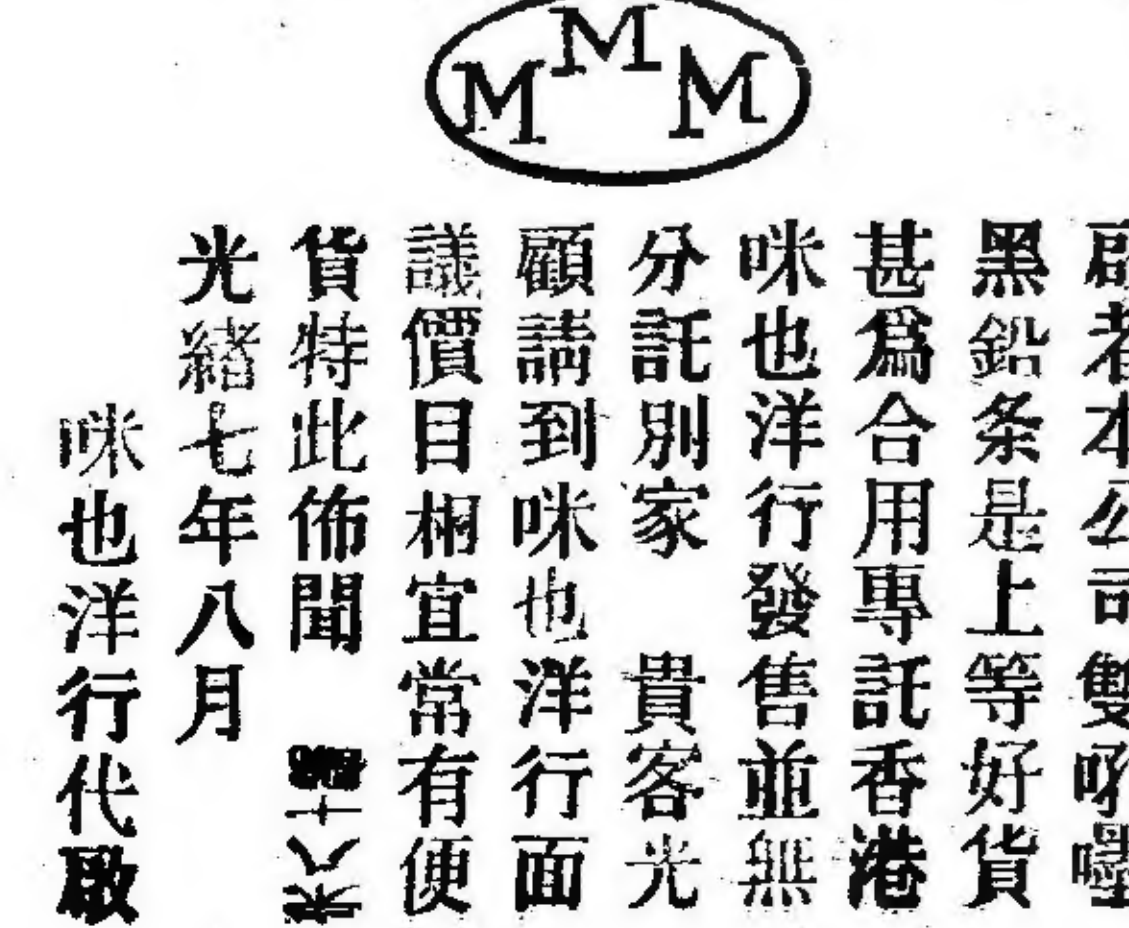 M M M
啟者本公司雙
黑鉛条是上等好貨
甚爲合用專託香港
咪也洋行發售並無
分託別家 貴客光
顧請到咪也洋行面
議價目相宜常有便
貨特此佈聞
光緒七年八月
咪也洋行代啟